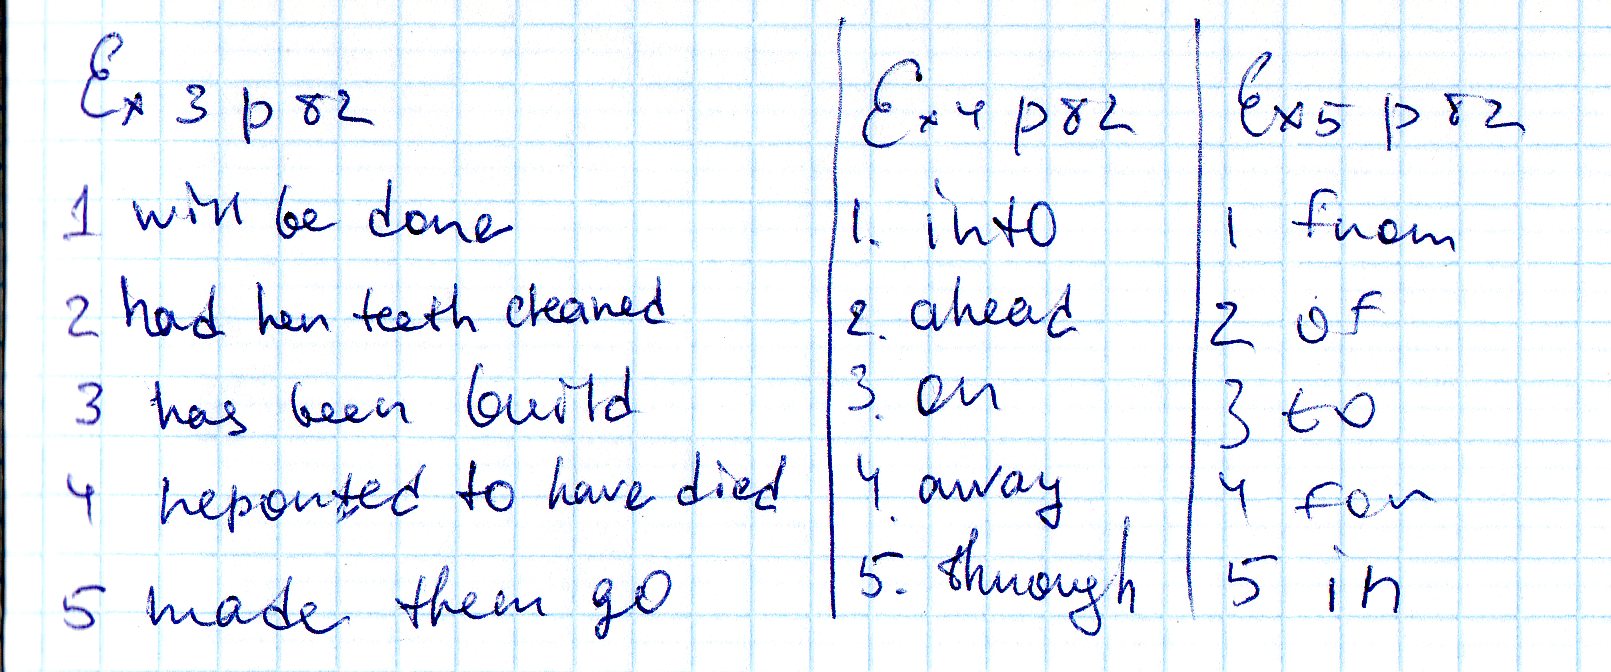 Ex 3 p 82
1 will be done
2 had her teeth cleaned
3 has been build
4 reported to have died
5 made them go
Ex 4 p 82
1. into
2. ahead
3. on
4. away
5. through
Ex 5 p 82
1 from
2 of
3 to
4 for
5 in